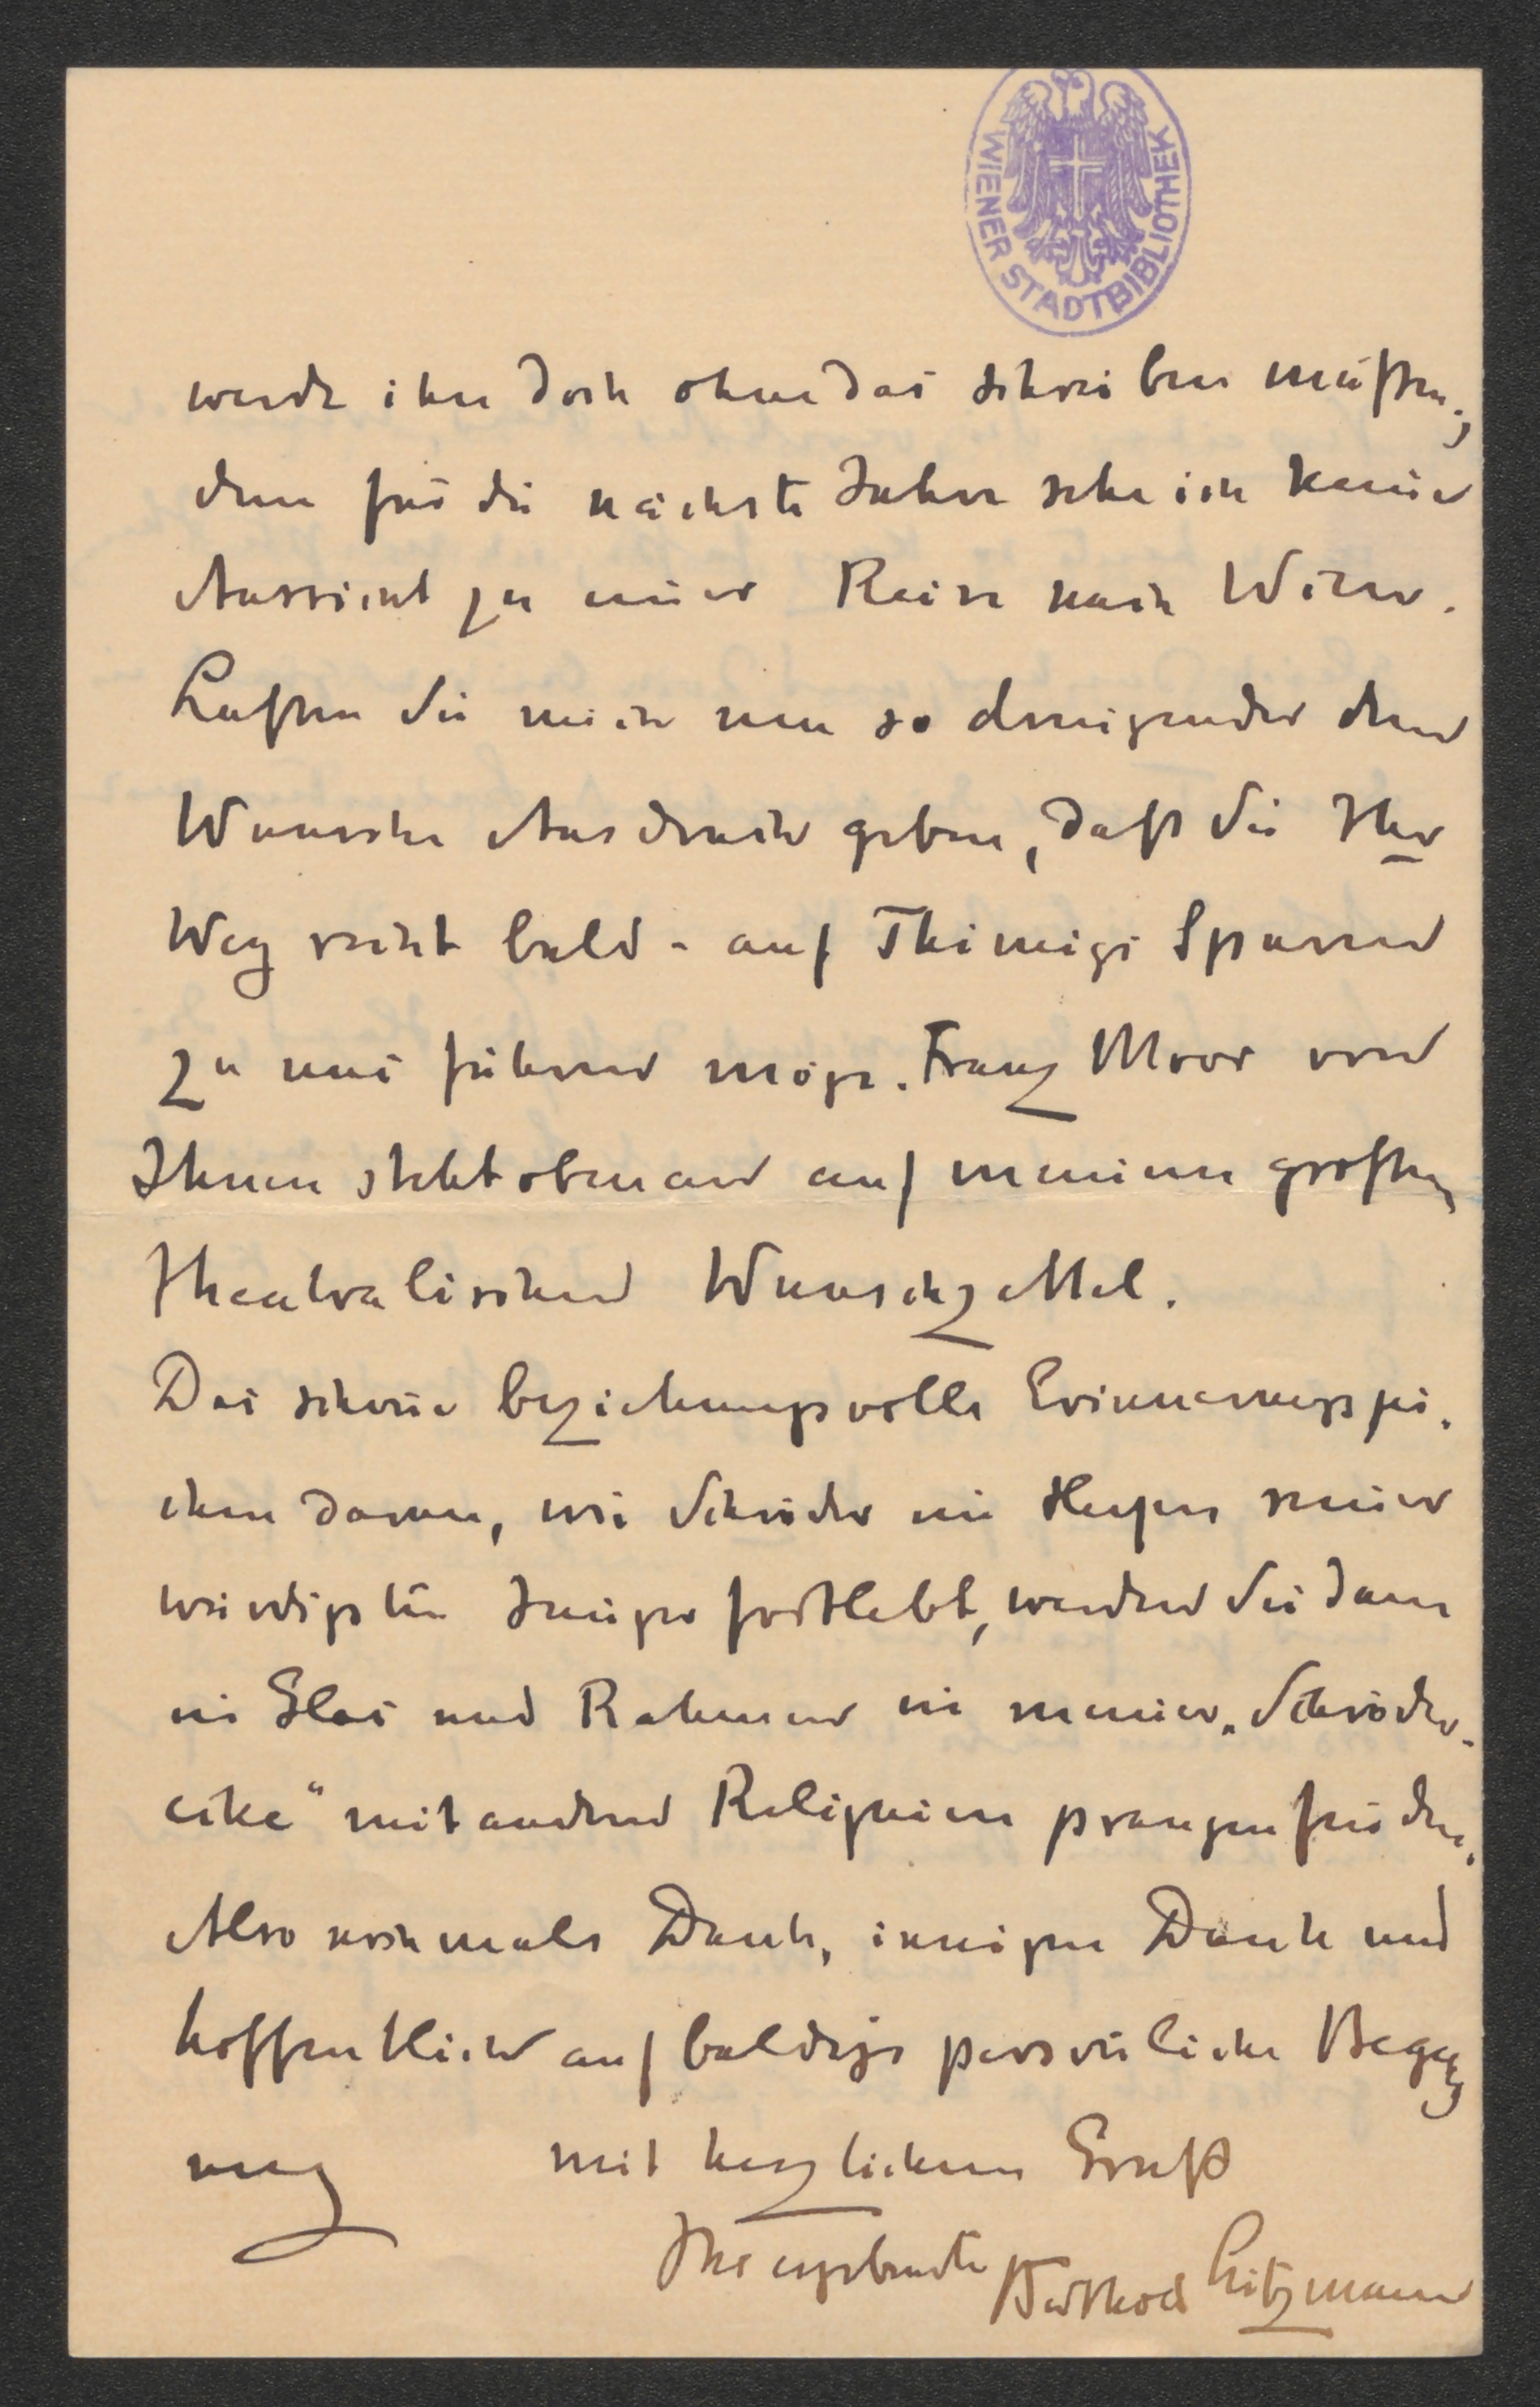 WIENER STADTBIBLIOTHEK
werde ihn doch ohne das schreiben müssen;
denn für die nächste Jahre sehe ich keine
Aussicht zu einer Reise nach Wien.
Lassen Sie mich nun so dringender dem
Wunsche Ausdruck geben, daß Sie Ihr
Weg recht bald - auf Thimigs Spuren
zu uns führen möge. Franz Moor von
Ihnen steht obenan auf meinem großen
theatralischen Wunschzettel.
Das schöne beziehungsvolle Erinnerungszei-
chen daran, wie Schröder im Herzen seiner
würdigsten Jünger fortlebt, werden Sie dann
in Glas und Rahmen in meiner „Schröder-
ecke" mit andern Reliquien prangen finden.
Also nochmals Dank, innigen Dank und
hoffentlich auf baldige persönliche Begeg
nung
mit herzlichem Gruß
Ihr ergebenster Berthold Litzmann